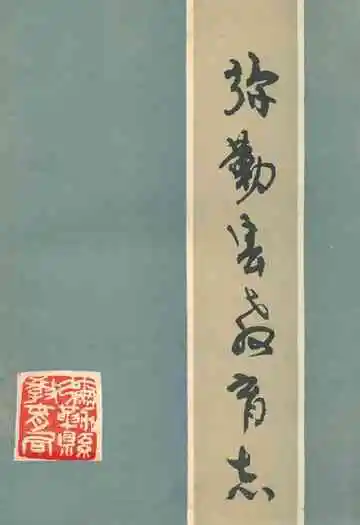 弥勒县教育志
彌勒縣教育局